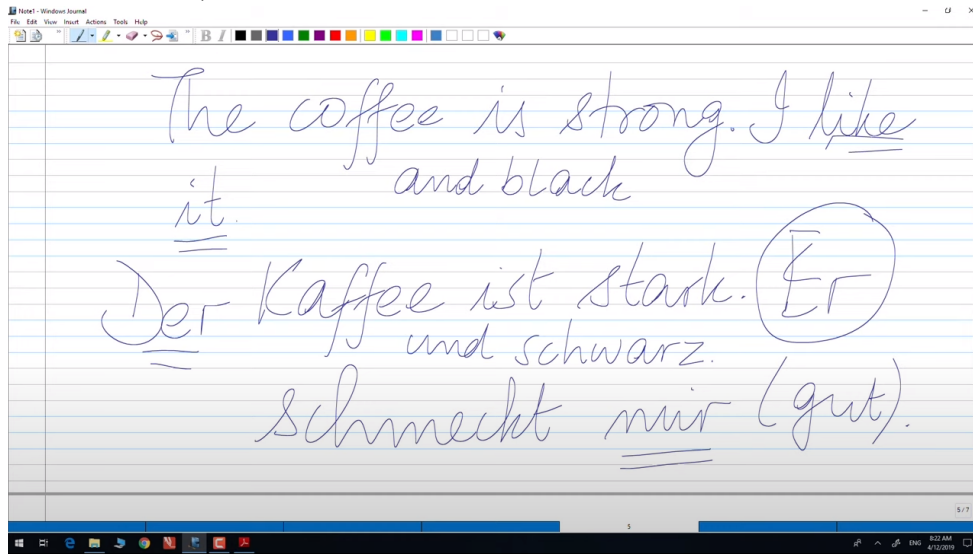 Note1 - Windows Journal
File Edit View Insert Actions Tools Help
B I
The coffee is strong. I like
and black
it.
Der Kaffee ist stark. Er
und schwarz.
schmeckt mir (gut).
5 / 7
5
ENG 8:22 AM
4/12/2019